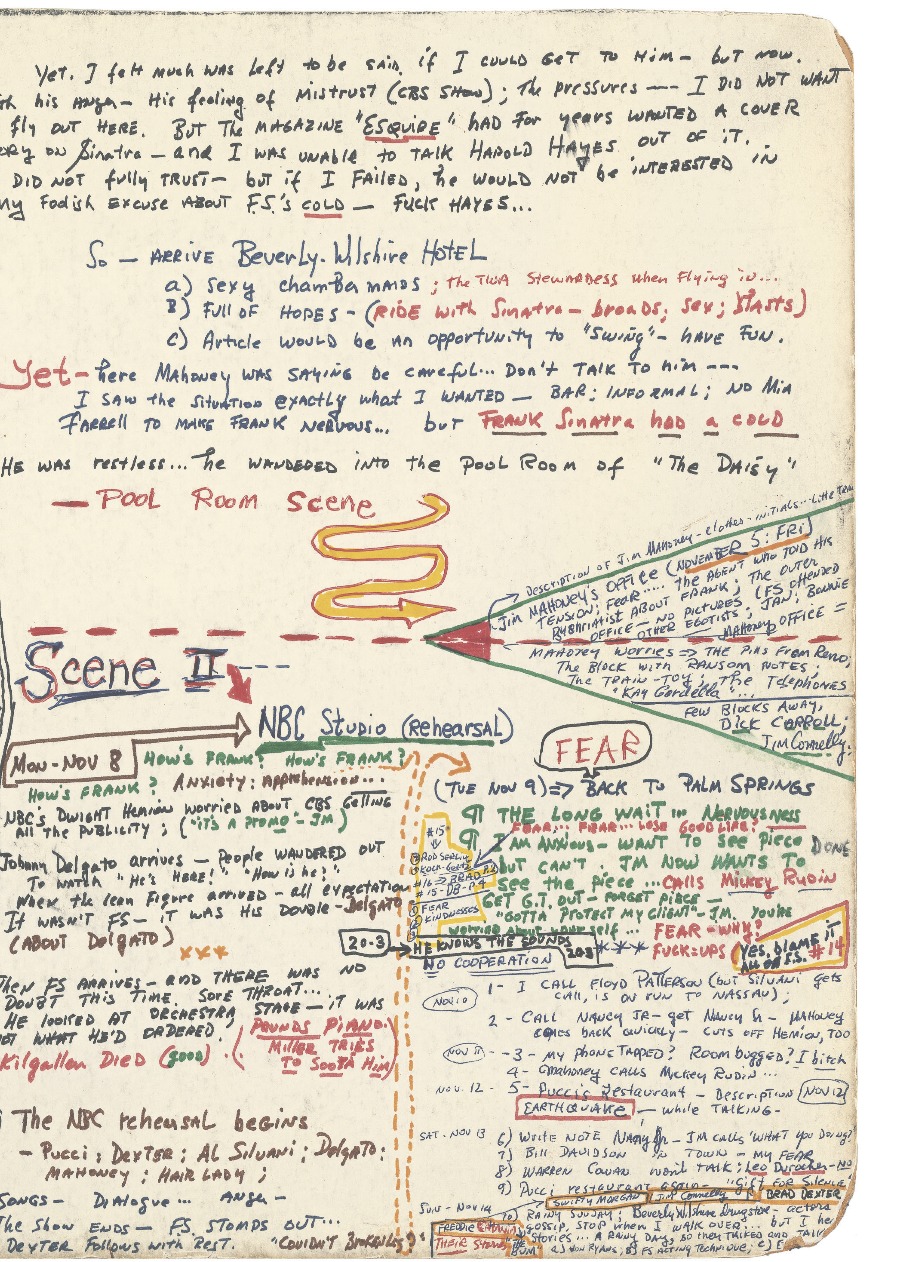 Yet. I felt much was left to be said, if I could get to him — but now.
his anger — His feeling of Mistrust (CBS Show); the pressures --- I DID NOT WANT
fly out here. But The MAGAZINE "ESQUIRE" had for years wanted a cover
on Sinatra — and I was unable to talk Harold Hayes out of it.
DID NOT fully TRUST — but if I FAILED, he would not be interested in
my Foolish Excuse about F.S.'s COLD — Fuck Hayes...
So — arrive Beverly-Wilshire Hotel
a) Sexy chambermaids ; the TWA Stewardess when Flying in...
B) Full of Hopes - (RIDE with Sinatra - broads, sex; blasts)
c) Article would be an opportunity to "Swing" - have fun.
Yet - here Mahoney was saying be careful... Don't talk to him ---
I saw the situation exactly what I wanted — Bar; Informal; No Mia
Farrell to make Frank nervous... but Frank Sinatra had a cold
He was restless... he wandered into the Pool Room of "The Daisy"
— Pool Room Scene
Description of Jim Mahoney - clothes - initials...
Jim Mahoney's office (November 5: Fri)
Tension; Fear..... the agent who told his
about Frank; The outer
office — no pictures (FS offended
other egotists; Jan; Bonnie
Mahoney office =
Mahoney worries => the pins from Reno;
The Block with Ransom Notes;
The Train-Toy; the Telephones
"Kay Gardella"...
Few Blocks Away,
Dick Carroll;
Jim Connelly.
Scene II
NBC Studio (rehearsal)
Mon-Nov 8
How's Frank? How's Frank?
How's Frank? Anxiety; apprehension...
NBC's Dwight Hemion worried about CBS getting
all the publicity; ("it's a promo" - JM)
Johnny Delgato arrives — People wandered out
To watch "He's here!" "How is he?"
When the lean figure arrived — all expectation
It wasn't FS — it was his double - Delgato
(About Delgato)
xxx
Then FS arrives — and there was no
doubt this time. Sore throat...
He looked at orchestra stage — it was
not what he'd ordered.
(Pounds Piano.
Miller tries
to sooth him)
Kilgallen Died (good).
The NBC rehearsal begins
— Pucci; Dexter; Al Silvani; Delgato;
Mahoney; Hair Lady;
Songs - Dialogue... Anger -
The Show ends — F.S. stomps out...
Dexter follows with rest. "Couldn't
FEAR
(Tue Nov 9) => Back to Palm Springs
¶ The long wait... Nervousness
Fear... Fear... lose good life?
¶ I am anxious — want to see piece DONE
but can't. JM now wants to
see the piece... calls Mickey Rudin
Get G.T. out - forget piece —
"Gotta protect my client" - JM. You're
worried about yourself...
#15
Rod Serling
#15-DB-P.4
Fear
Kindnesses
Fear - Why?
Fuck=ups
Yes, blame it
all on F.S. #14
20-3
He knows the sounds
20-3
***
No Cooperation
Nov 10
1- I call Floyd Patterson (but Silvani gets
call, is on run to Nassau);
2 - Call Nancy Jr - get Nancy Sr - Mahoney
comes back quickly — cuts off Hemion, too
Nov 11 - 3- my phone tapped? Room bugged? I bitch
4- Mahoney calls Mickey Rudin...
Nov. 12 - 5- Pucci's restaurant - Description (Nov 12)
EARTHQUAKE — while talking -
Sat - Nov 13
6) Write note Nancy Jr - JM calls 'What you doing?'
7) Bill Davidson in town - my fear
8) Warren Cowan won't talk; Leo Durocher - no
9) Pucci restaurant again - "Gift for Silence
Swifty Morgan Jim Connelly Brad Dexter
Sun - Nov 14
10) Rainy Sunday; Beverly Wilshire Drugstore - actors
gossip, stop when I walk over... but I he
Freddie
Their Stories
Stories... A rainy day, so they talked and
B) FS acting technique;